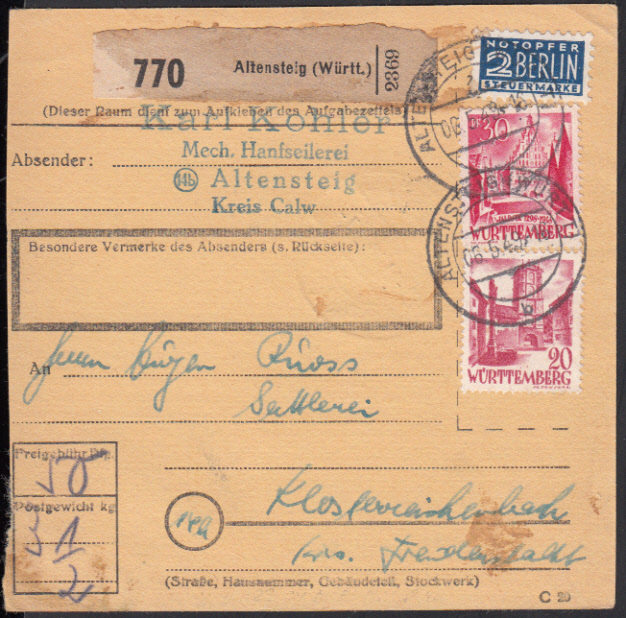 770 Altensteig (Württ.) 2369
NOTOPFER
2 BERLIN
STEUERMARKE
(Dieser Raum dient zum Aufkleben des Aufgabezettels)
Karl Kohler
Absender: Mech. Hanfseilerei
14b Altensteig
Kreis Calw
DPF 30
WÜRTTEMBERG
ALTENSTEIG (WÜRTT)
Besondere Vermerke des Absenders (s. Rückseite):
20
WÜRTTEMBERG
An Herrn Eugen Ruoss
Sattlerei
Freigebühr Pfg.
50
Postgewicht kg
3 1/2
14b
Klosterreichenbach
Krs. Freudenstadt
(Straße, Hausnummer, Gebäudeteil, Stockwerk)
C 20